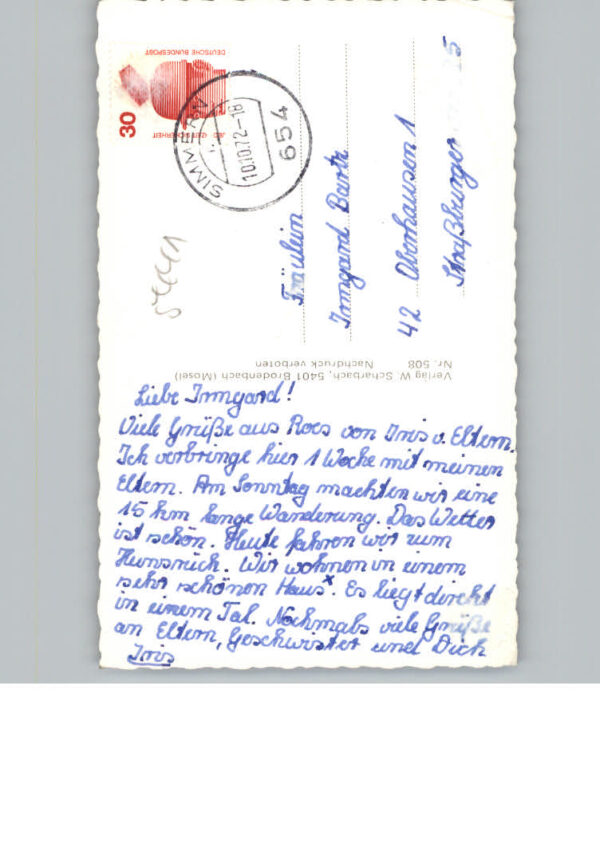 DEUTSCHE BUNDESPOST
30
SICHERHEIT
SIMMERN
10.10.72-18
654
Fräulein
Irmgard Barth
42 Oberhausen 1
Straßburger 15
Verlag W. Scharbach, 5401 Brodenbach (Mosel)
Nr. 508 Nachdruck verboten
Liebe Irmgard!
Viele Grüße aus Roes von Iris u. Eltern.
Ich verbringe hier 1 Woche mit meinen
Eltern. Am Sonntag machten wir eine
15 km lange Wanderung. Das Wetter
ist schön. Heute fahren wir zum
Hunsrück. Wir wohnen in einem
sehr schönen Haus x. Es liegt direkt
in einem Tal. Nochmals viele Grüße
an Eltern, Geschwister und Dich
Iris